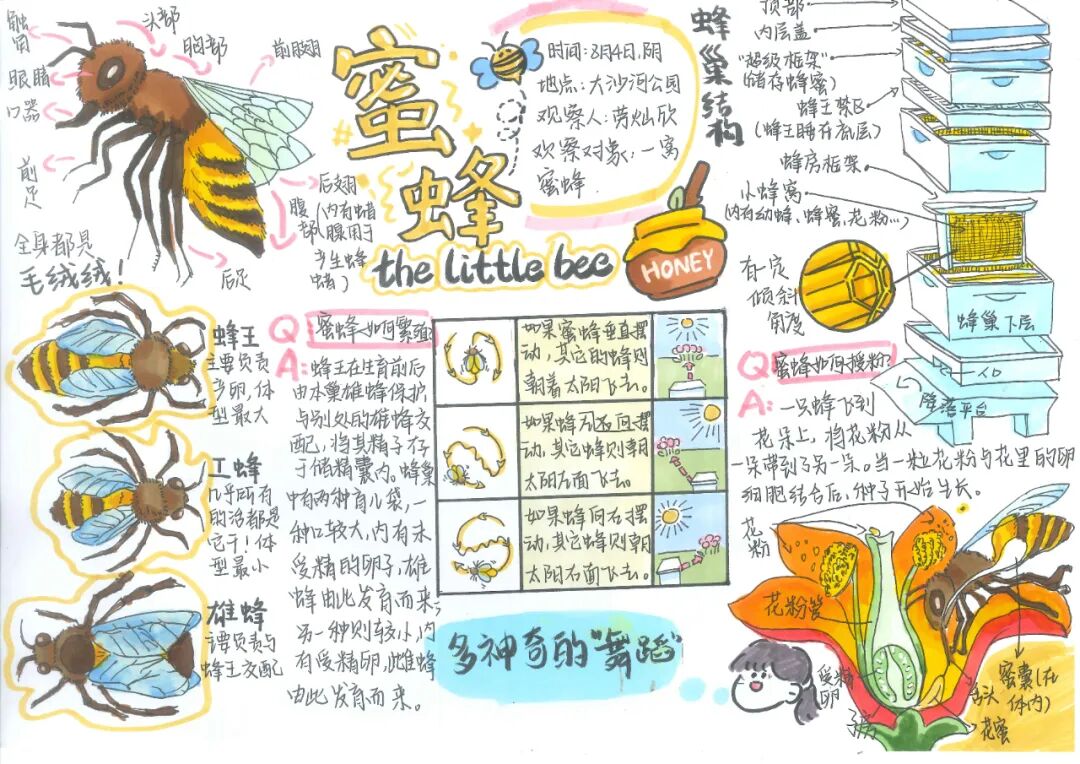 触角
头部
胸部
前翅
眼睛
口器
前足
后翅
腹部
(内有蜡
腺用于
产生蜂
蜡)
后足
全身都是
毛绒绒!
蜜蜂
the little bee
时间:3月4日,阴
地点:大沙河公园
观察人:劳灿欣
观察对象:一窝
蜜蜂
HONEY
蜂巢结构
顶部
内层盖
"超级框架"
(储存蜂蜜)
蜂王禁区
(蜂王睡在底层)
蜂房框架
小蜂窝
(内有幼蜂、蜂蜜、花粉...)
有一定
倾斜
角度
蜂巢下层
入口
降落平台
蜂王
主要负责
产卵,体
型最大
工蜂
几乎所有
的活都是
它干!体
型最小
雄蜂
主要负责与
蜂王交配
Q 蜜蜂如何繁殖
A:蜂王在生育前后
由本巢雄蜂保护
与别处的雄蜂交
配,将其精子存
于储精囊内。蜂巢
中有两种育儿袋,一
种口较大,内有未
受精的卵子,雄
蜂由此发育而来;
另一种则较小,内
有受精卵,雌蜂
由此发育而来。
如果蜜蜂垂直摆
动,其它的蜂则
朝着太阳飞去。
如果蜂向左回摆
动,其它蜂则朝
太阳左面飞去。
如果蜂向右摆
动,其它蜂则朝
太阳右面飞去。
多神奇的"舞蹈"
Q 蜜蜂如何授粉!
A:一只蜂飞到
花朵上,将花粉从
一朵带到了另一朵。当一粒花粉与花里的卵
细胞结合后,种子开始生长。
花粉
花粉管
受精卵
子房
舌头
花蜜
蜜囊(在
体内)